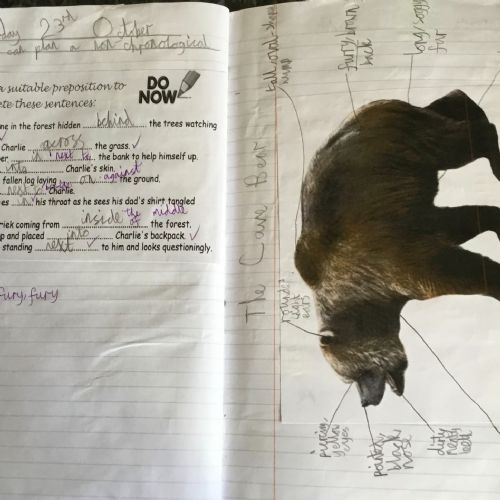 day 23rd October
can plan a non-chronological
a suitable preposition to
ete these sentences:
DO NOW
ne in the forest hidden behind the trees watching
Charlie across the grass.
er in next to the bank to help himself up.
into Charlie's skin.
fallen log laying on against the ground.
next to Charlie.
es in his throat as he sees his dad's shirt tangled
riek coming from inside the middle of the forest.
p and placed into Charlie's backpack.
standing next to him and looks questioningly.
fury, fury
The Cave Bear
furry brown back
long
fur
round
ears
yellow eyes
pointed black nose
dirty
teeth